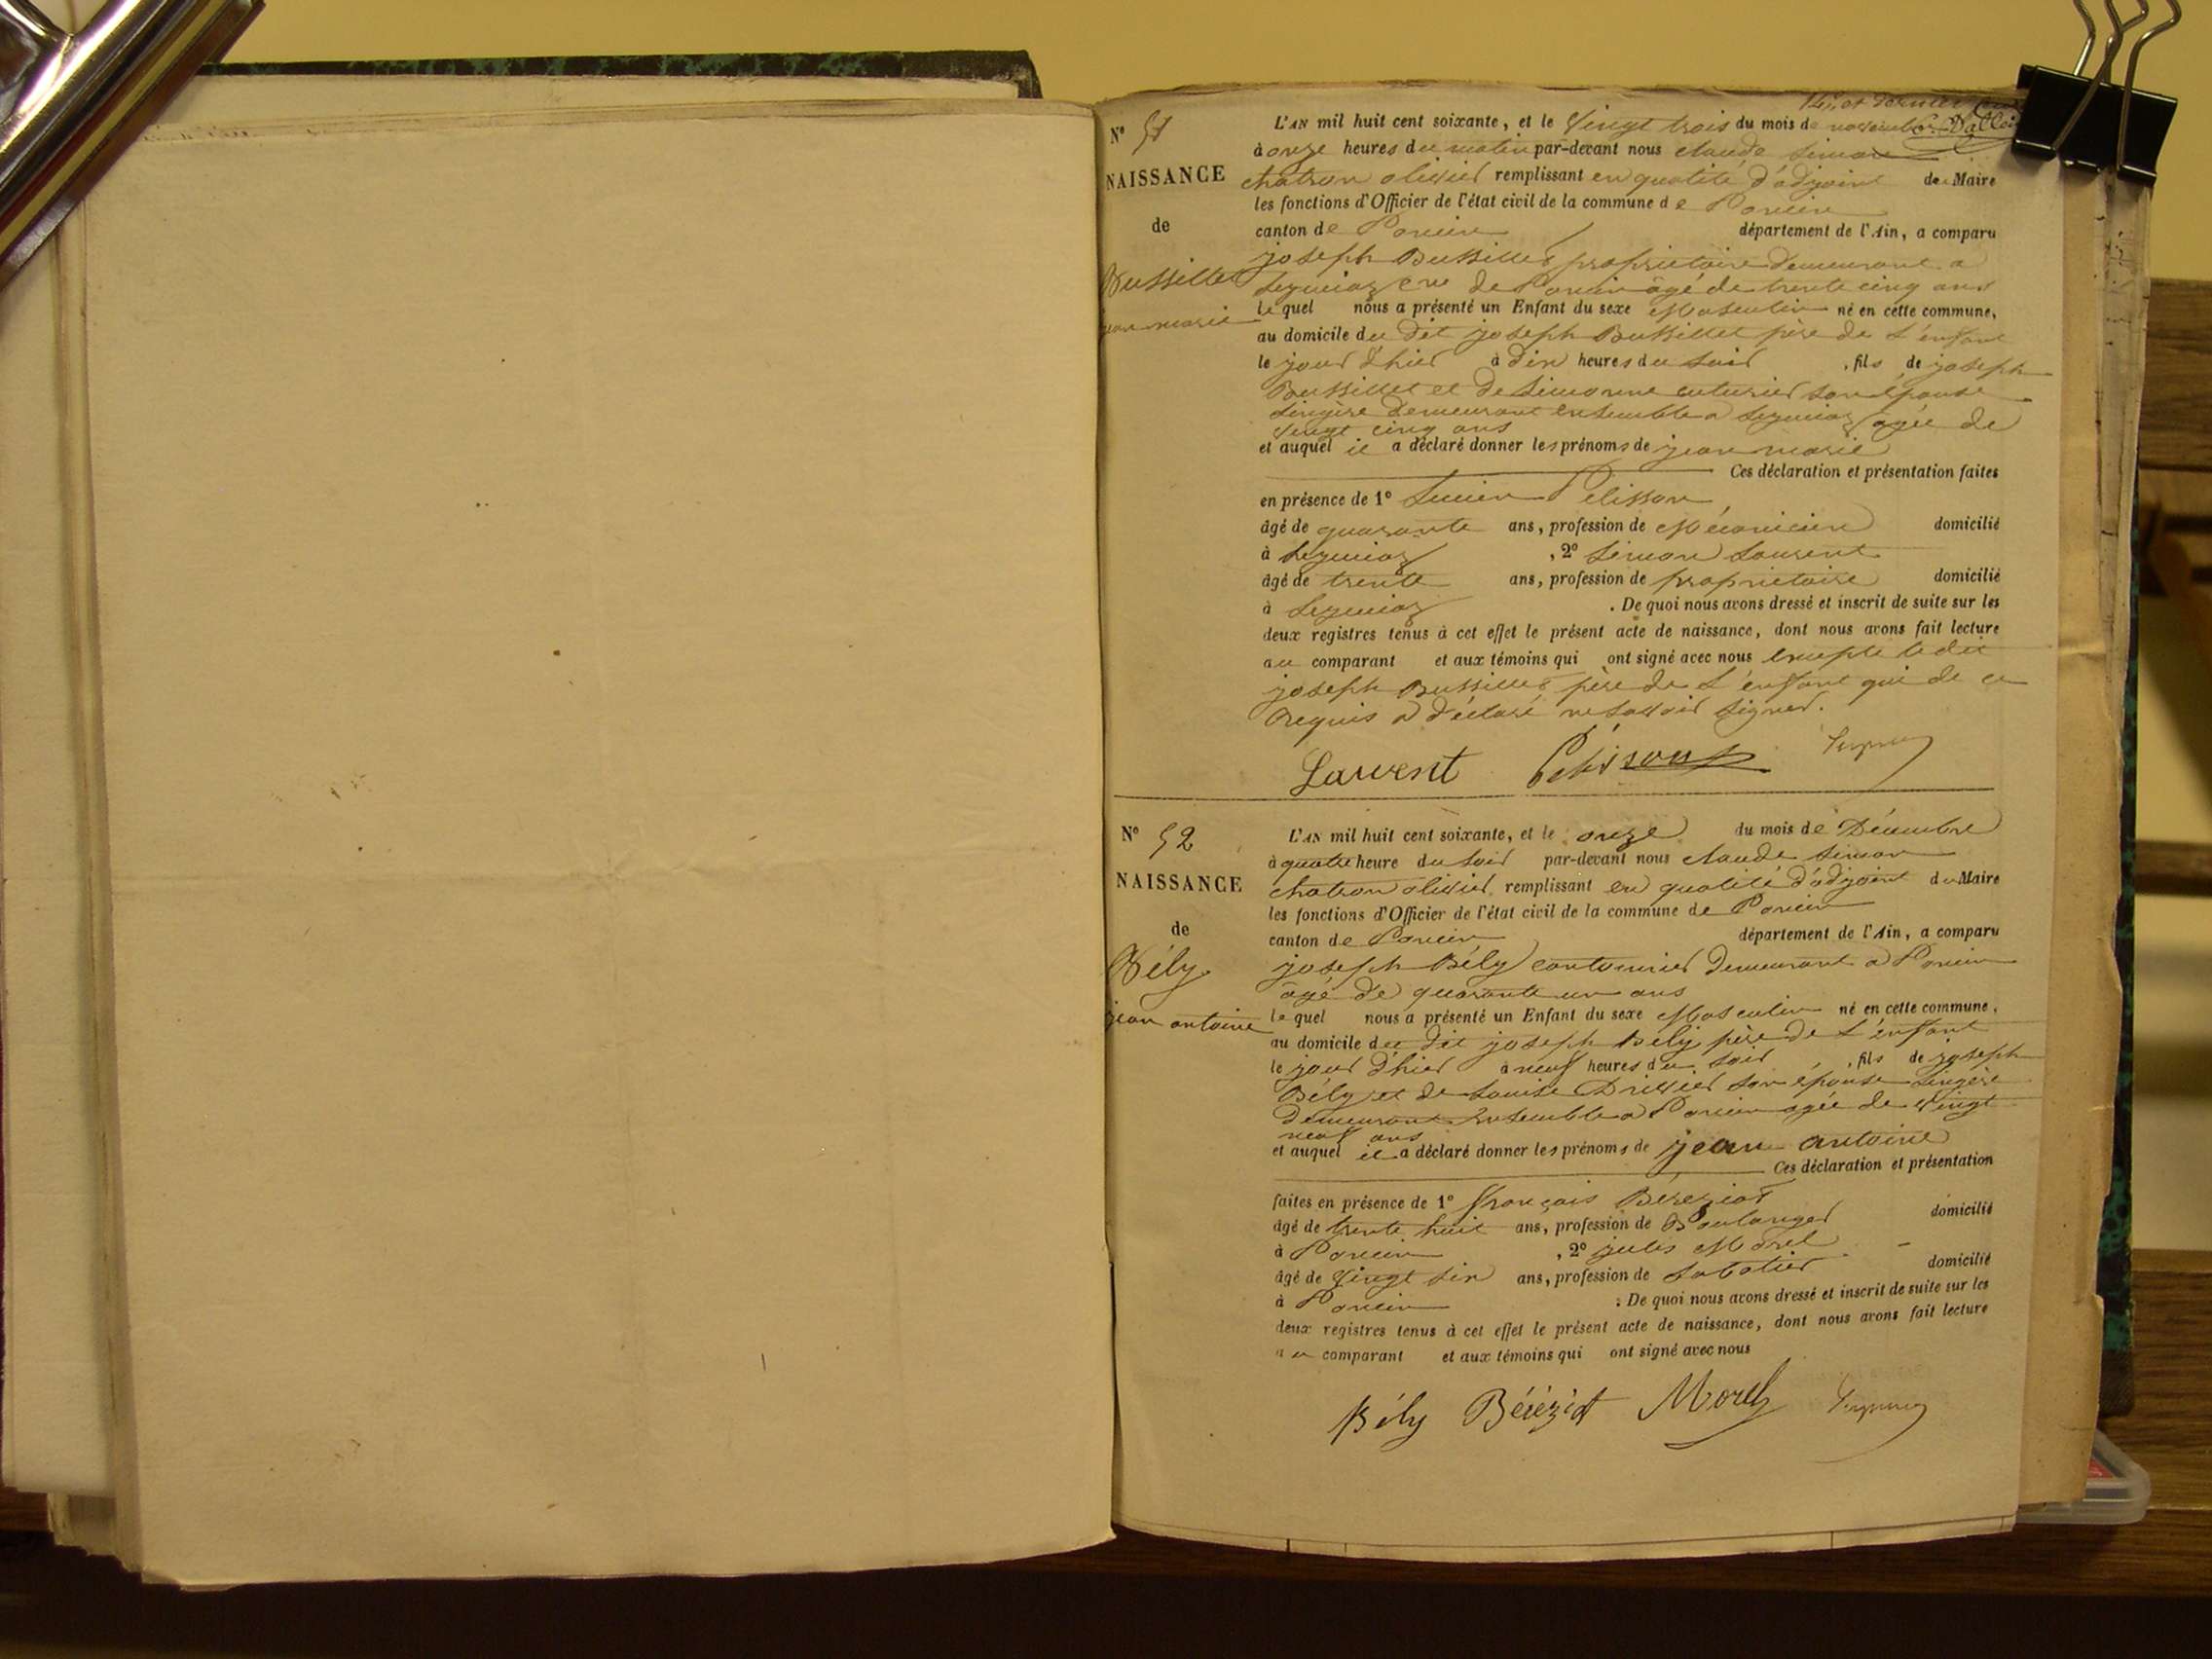 14e et dernier
N° 51
L'AN mil huit cent soixante, et le Vingt trois du mois de novembre
à onze heures du matin par-devant nous claude simon
NAISSANCE
chatron olivier remplissant en qualité d'adjoint de Maire
les fonctions d'Officier de l'état civil de la commune de Poncin
de
canton de Poncin département de l'Ain, a comparu
joseph Bussillet propriétaire demeurant a
Bussillet
jean marie
Leymiaz cne de Poncin âgé de trente cinq ans
lequel nous a présenté un Enfant du sexe Masculin né en cette commune,
au domicile du dit joseph Bussillet père de l'enfant
le jour d'hier à dix heures du soir , fils de joseph
Bussillet et de Simonne cuturier son épouse
lingère demeurant ensemble a Leymiaz agée de
vingt cinq ans
et auquel il a déclaré donner les prénoms de jean marie
Ces déclaration et présentation faites
en présence de 1° Lucien Pelisson
âgé de quarante ans, profession de Mécanicien domicilié
à Leymiaz , 2° Simon Laurent
âgé de trente ans, profession de propriétaire domicilié
à Leymiaz . De quoi nous avons dressé et inscrit de suite sur les
deux registres tenus à cet effet le présent acte de naissance, dont nous avons fait lecture
au comparant et aux témoins qui ont signé avec nous excepté le dit
joseph Bussillet père de l'enfant qui de ce
requis a déclaré ne savoir signer.
Laurent Pelisson
N° 52
L'AN mil huit cent soixante, et le onze du mois de Décembre
à quatre heure du soir par-devant nous claude simon
NAISSANCE
chatron olivier remplissant en qualité d'adjoint du Maire
les fonctions d'Officier de l'état civil de la commune de Poncin
de
canton de Poncin département de l'Ain, a comparu
Bély
jean antoine
joseph Bély cantonnier demeurant a Poncin
âgé de quarante un ans
lequel nous a présenté un Enfant du sexe Masculin né en cette commune,
au domicile du dit joseph Bély père de l'enfant
le jour d'hier à neuf heures du soir , fils de joseph
Bély et de Louise Drivier son épouse lingère
demeurant ensemble a Poncin agée de vingt
neuf ans
et auquel il a déclaré donner les prénoms de jean antoine
Ces déclaration et présentation
faites en présence de 1° françois Béréziat
âgé de trente huit ans, profession de Boulanger domicilié
à Poncin , 2° jules Morel
âgé de vingt six ans, profession de Sabotier domicilié
à Poncin : De quoi nous avons dressé et inscrit de suite sur les
deux registres tenus à cet effet le présent acte de naissance, dont nous avons fait lecture
au comparant et aux témoins qui ont signé avec nous
Bély Béréziat Morel